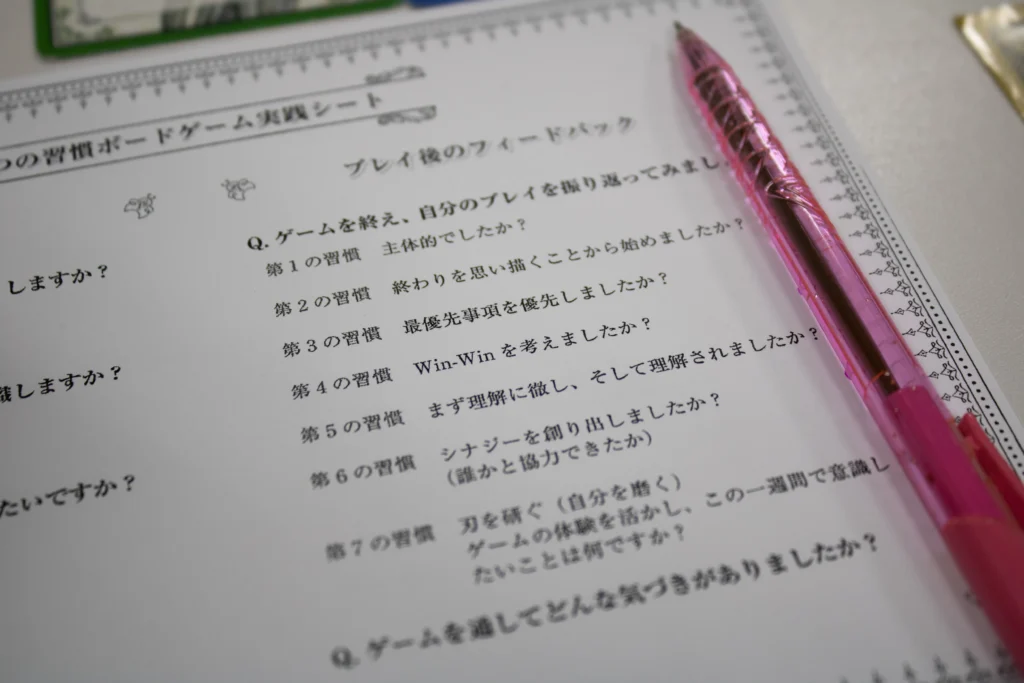 つの習慣ボードゲーム実践シート
プレイ後のフィードバック
Q. ゲームを終え、自分のプレイを振り返ってみまし
第1の習慣 主体的でしたか?
第2の習慣 終わりを思い描くことから始めましたか?
第3の習慣 最優先事項を優先しましたか?
第4の習慣 Win-Win を考えましたか?
第5の習慣 まず理解に徹し、そして理解されましたか?
第6の習慣 シナジーを創り出しましたか?
(誰かと協力できたか)
第7の習慣 刃を研ぐ(自分を磨く)
ゲームの体験を活かし、この一週間で意識し
たいことは何ですか?
Q. ゲームを通してどんな気づきがありましたか?
しますか?
識しますか?
たいですか?